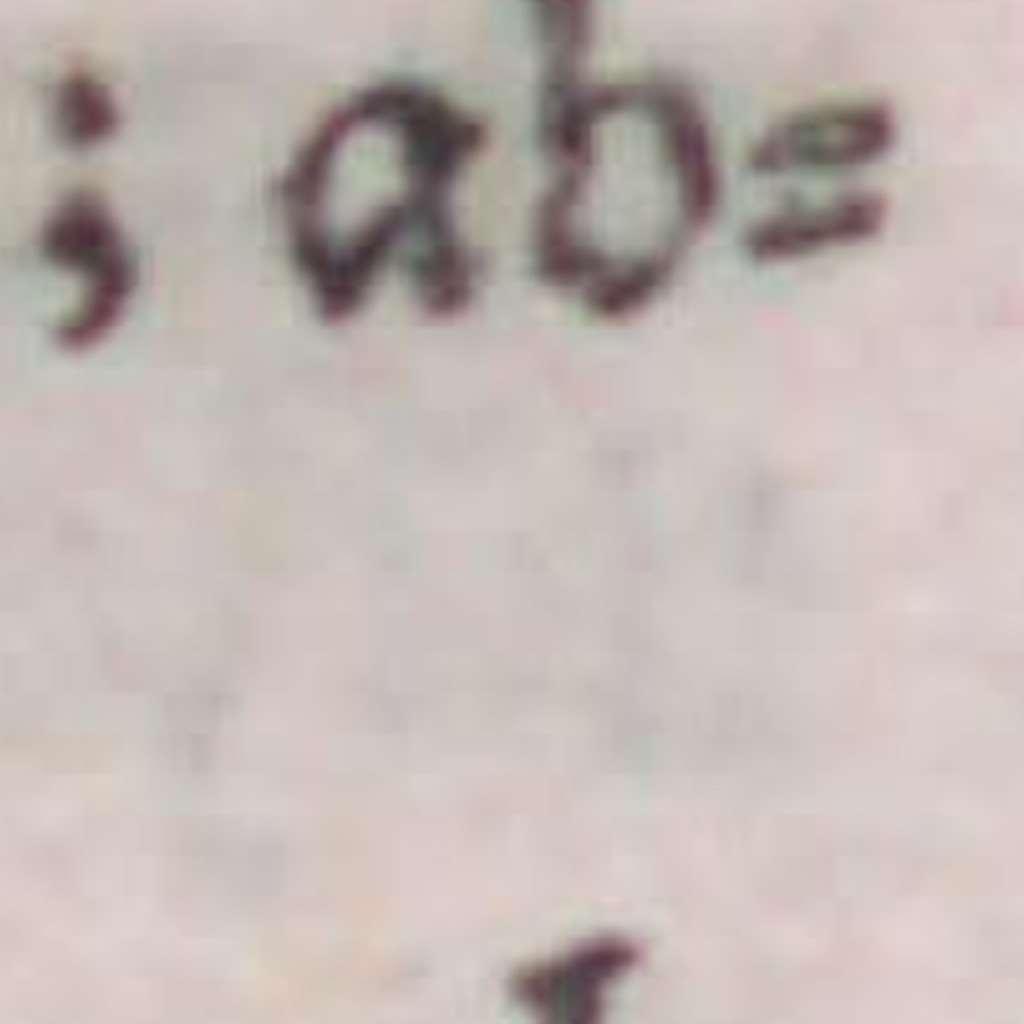 ; ab=